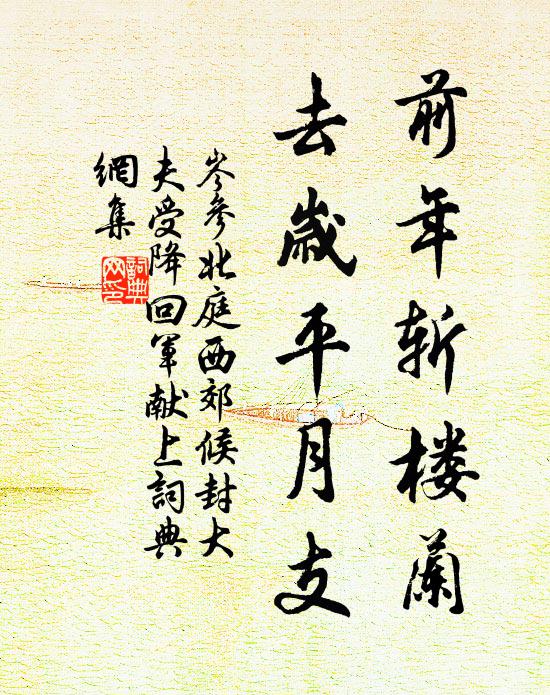 前年斩楼蘭
去歳平月支
岑参北庭西郊候封大
夫受降回軍献上詞典
網集
詞典
网印